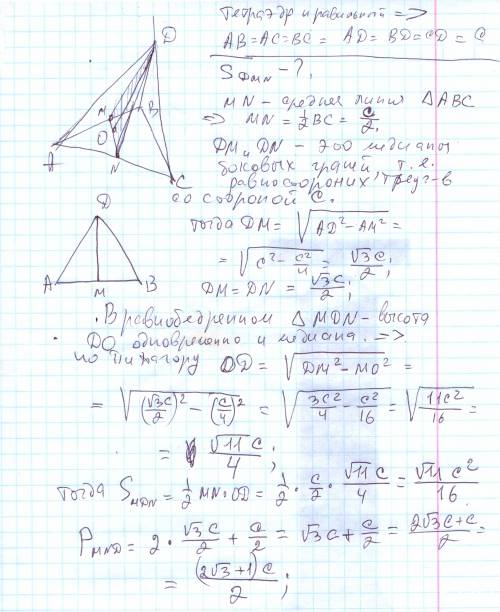 Тетраэдр правильный =>
AB = AC = BC = AD = BD = CD = C
S_DMN - ?,
MN - средняя линия △ABC
=> MN = 1/2 BC = c/2,
DM и DN - это медианы
боковых граней, т.е.
равносторонних треуг-в
со стороной C.
тогда DM = √(AD² - AM²) =
= √(c² - c²/4) = √3c/2;
DM = DN = √3c/2;
D
M
B
O
A
N
C
D
A
M
B
. В равнобедренном △MDN - высота
DO одновременно и медиана. =>
по Пифагору OD = √(DM² - MO²) =
= √((√3c/2)² - (c/4)²) = √(3c²/4 - c²/16) = √(11c²/16) =
= √11 c/4;
тогда S_MDN = 1/2 MN·OD = 1/2 · c/2 · √11c/4 = √11 c²/16
P_MND = 2 · √3c/2 + c/2 = √3c + c/2 = 2√3c+c/2 =
= (2√3+1)c/2;